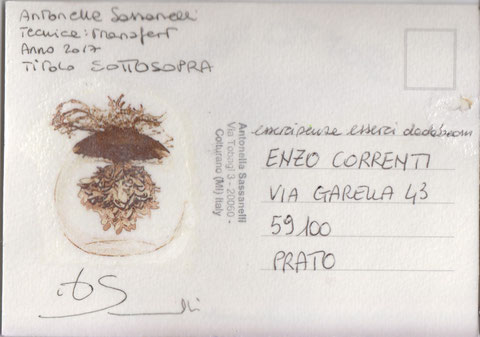 Antonella Sassanelli
Tecnica: Transfert
Anno 2017
Titolo SOTTOSOPRA
Antonella Sassanelli
Via Tobagi 3 - 20060 -
Colturano (MI) Italy
esserci
ENZO CORRENTI
VIA GARELLA 43
59100
PRATO